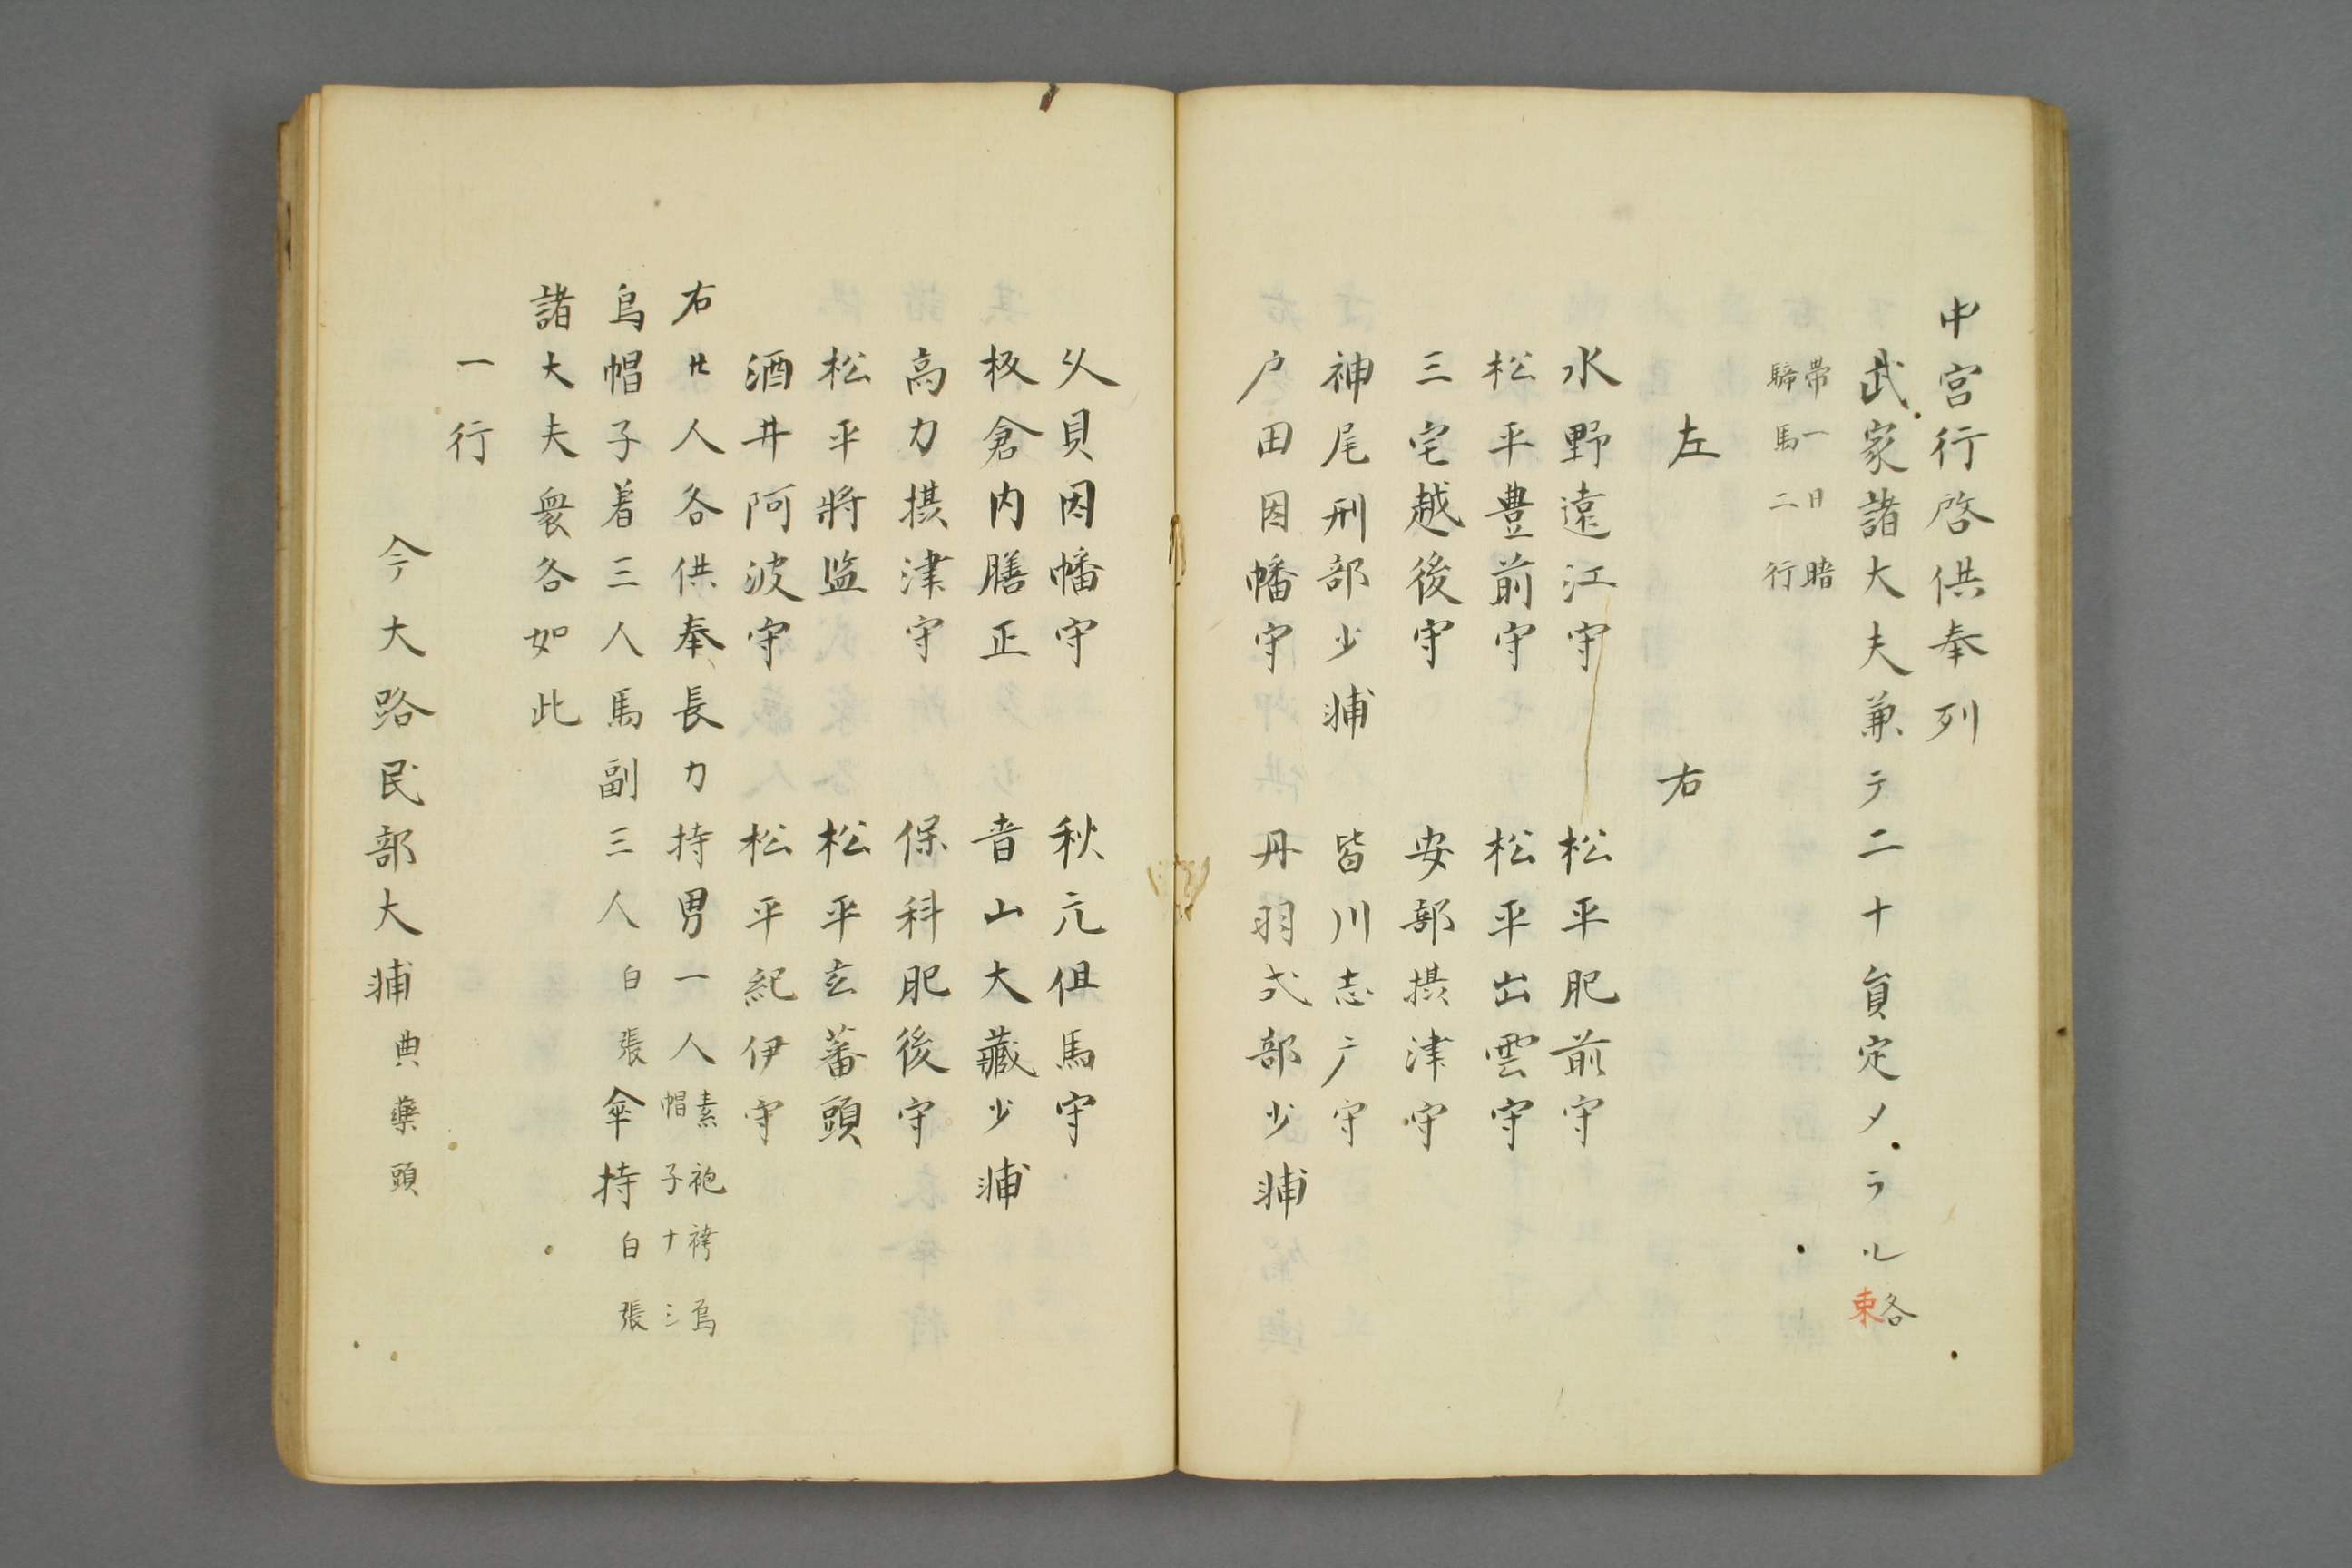 中宮行啓供奉列
武家諸大夫兼テ二十員定メラル各束
帶一日暗
騎馬二行
左　右
水野遠江守　松平肥前守
松平豊前守　松平出雲守
三宅越後守　安部摂津守
神尾刑部少輔　皆川志广守
戸田因幡守　丹羽式部少輔
久貝因幡守　秋元但馬守
板倉内膳正　青山大藏少輔
高力摂津守　保科肥後守
松平將监　松平玄蕃頭
酒井阿波守　松平紀伊守
右廿人各供奉長刀持男一人素袍袴烏帽子十三
烏帽子着三人馬副三人白張傘持白張
諸大夫衆各如此
一行
今大路民部大輔典藥頭